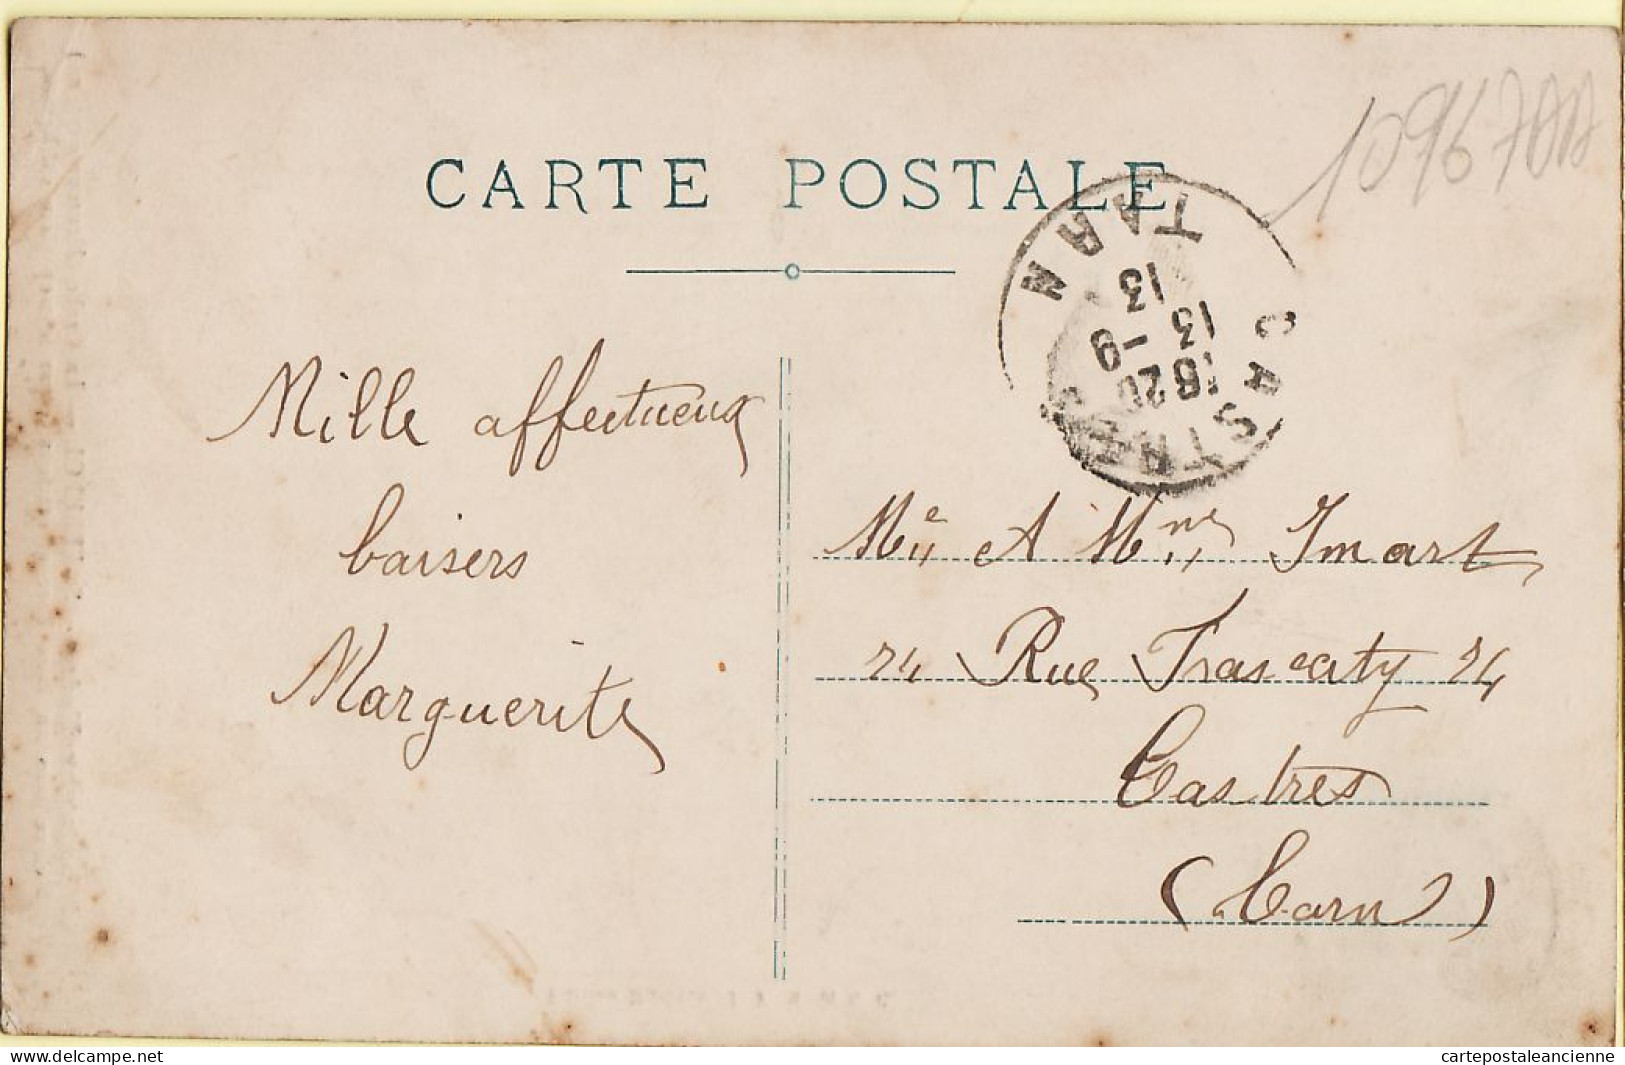 CARTE POSTALE
1096700A
CASTRES
TARN
1820
13 -9
13
Mille affectueux
baisers
Marguerite
Mr et Mme Imart
24 Rue Frascaty 24
Castres
(Tarn)
delcampe.net
cartepostaleancienne